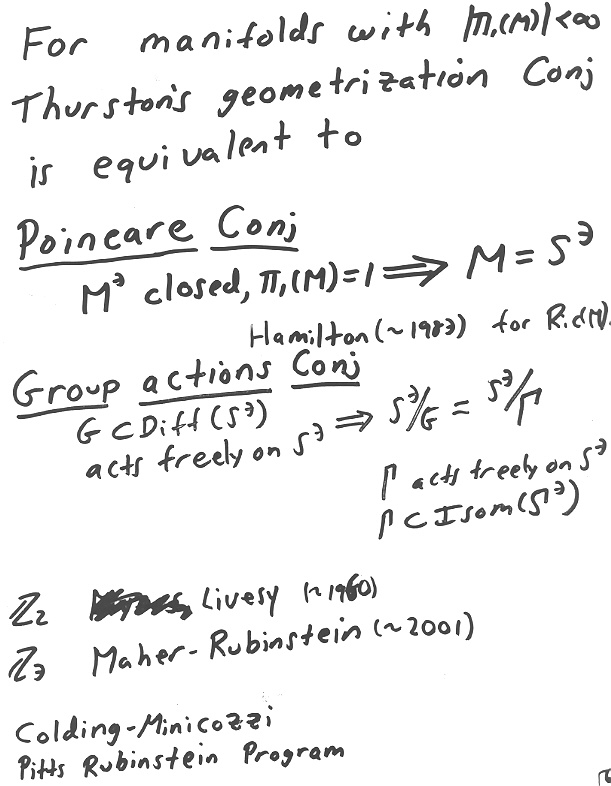 For manifolds with |π₁(M)|<∞
Thurston's geometrization Conj
is equivalent to
Poincare Conj
M³ closed, π₁(M)=1 ⟹ M=S³
Hamilton (~1983) for Ric(M).
Group actions Conj
G⊂Diff(S³)
acts freely on S³ ⟹ S³/G = S³/Γ
Γ acts freely on S³
Γ⊂Isom(S³)
ℤ₂ Livesy (~1960)
ℤ₃ Maher-Rubinstein (~2001)
Colding-Minicozzi
Pitts Rubinstein Program